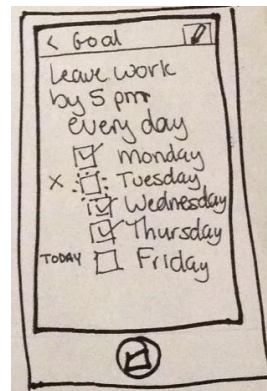 < Goal
Leave work
by 5 pm
every day
monday
x Tuesday
Wednesday
Thursday
TODAY Friday